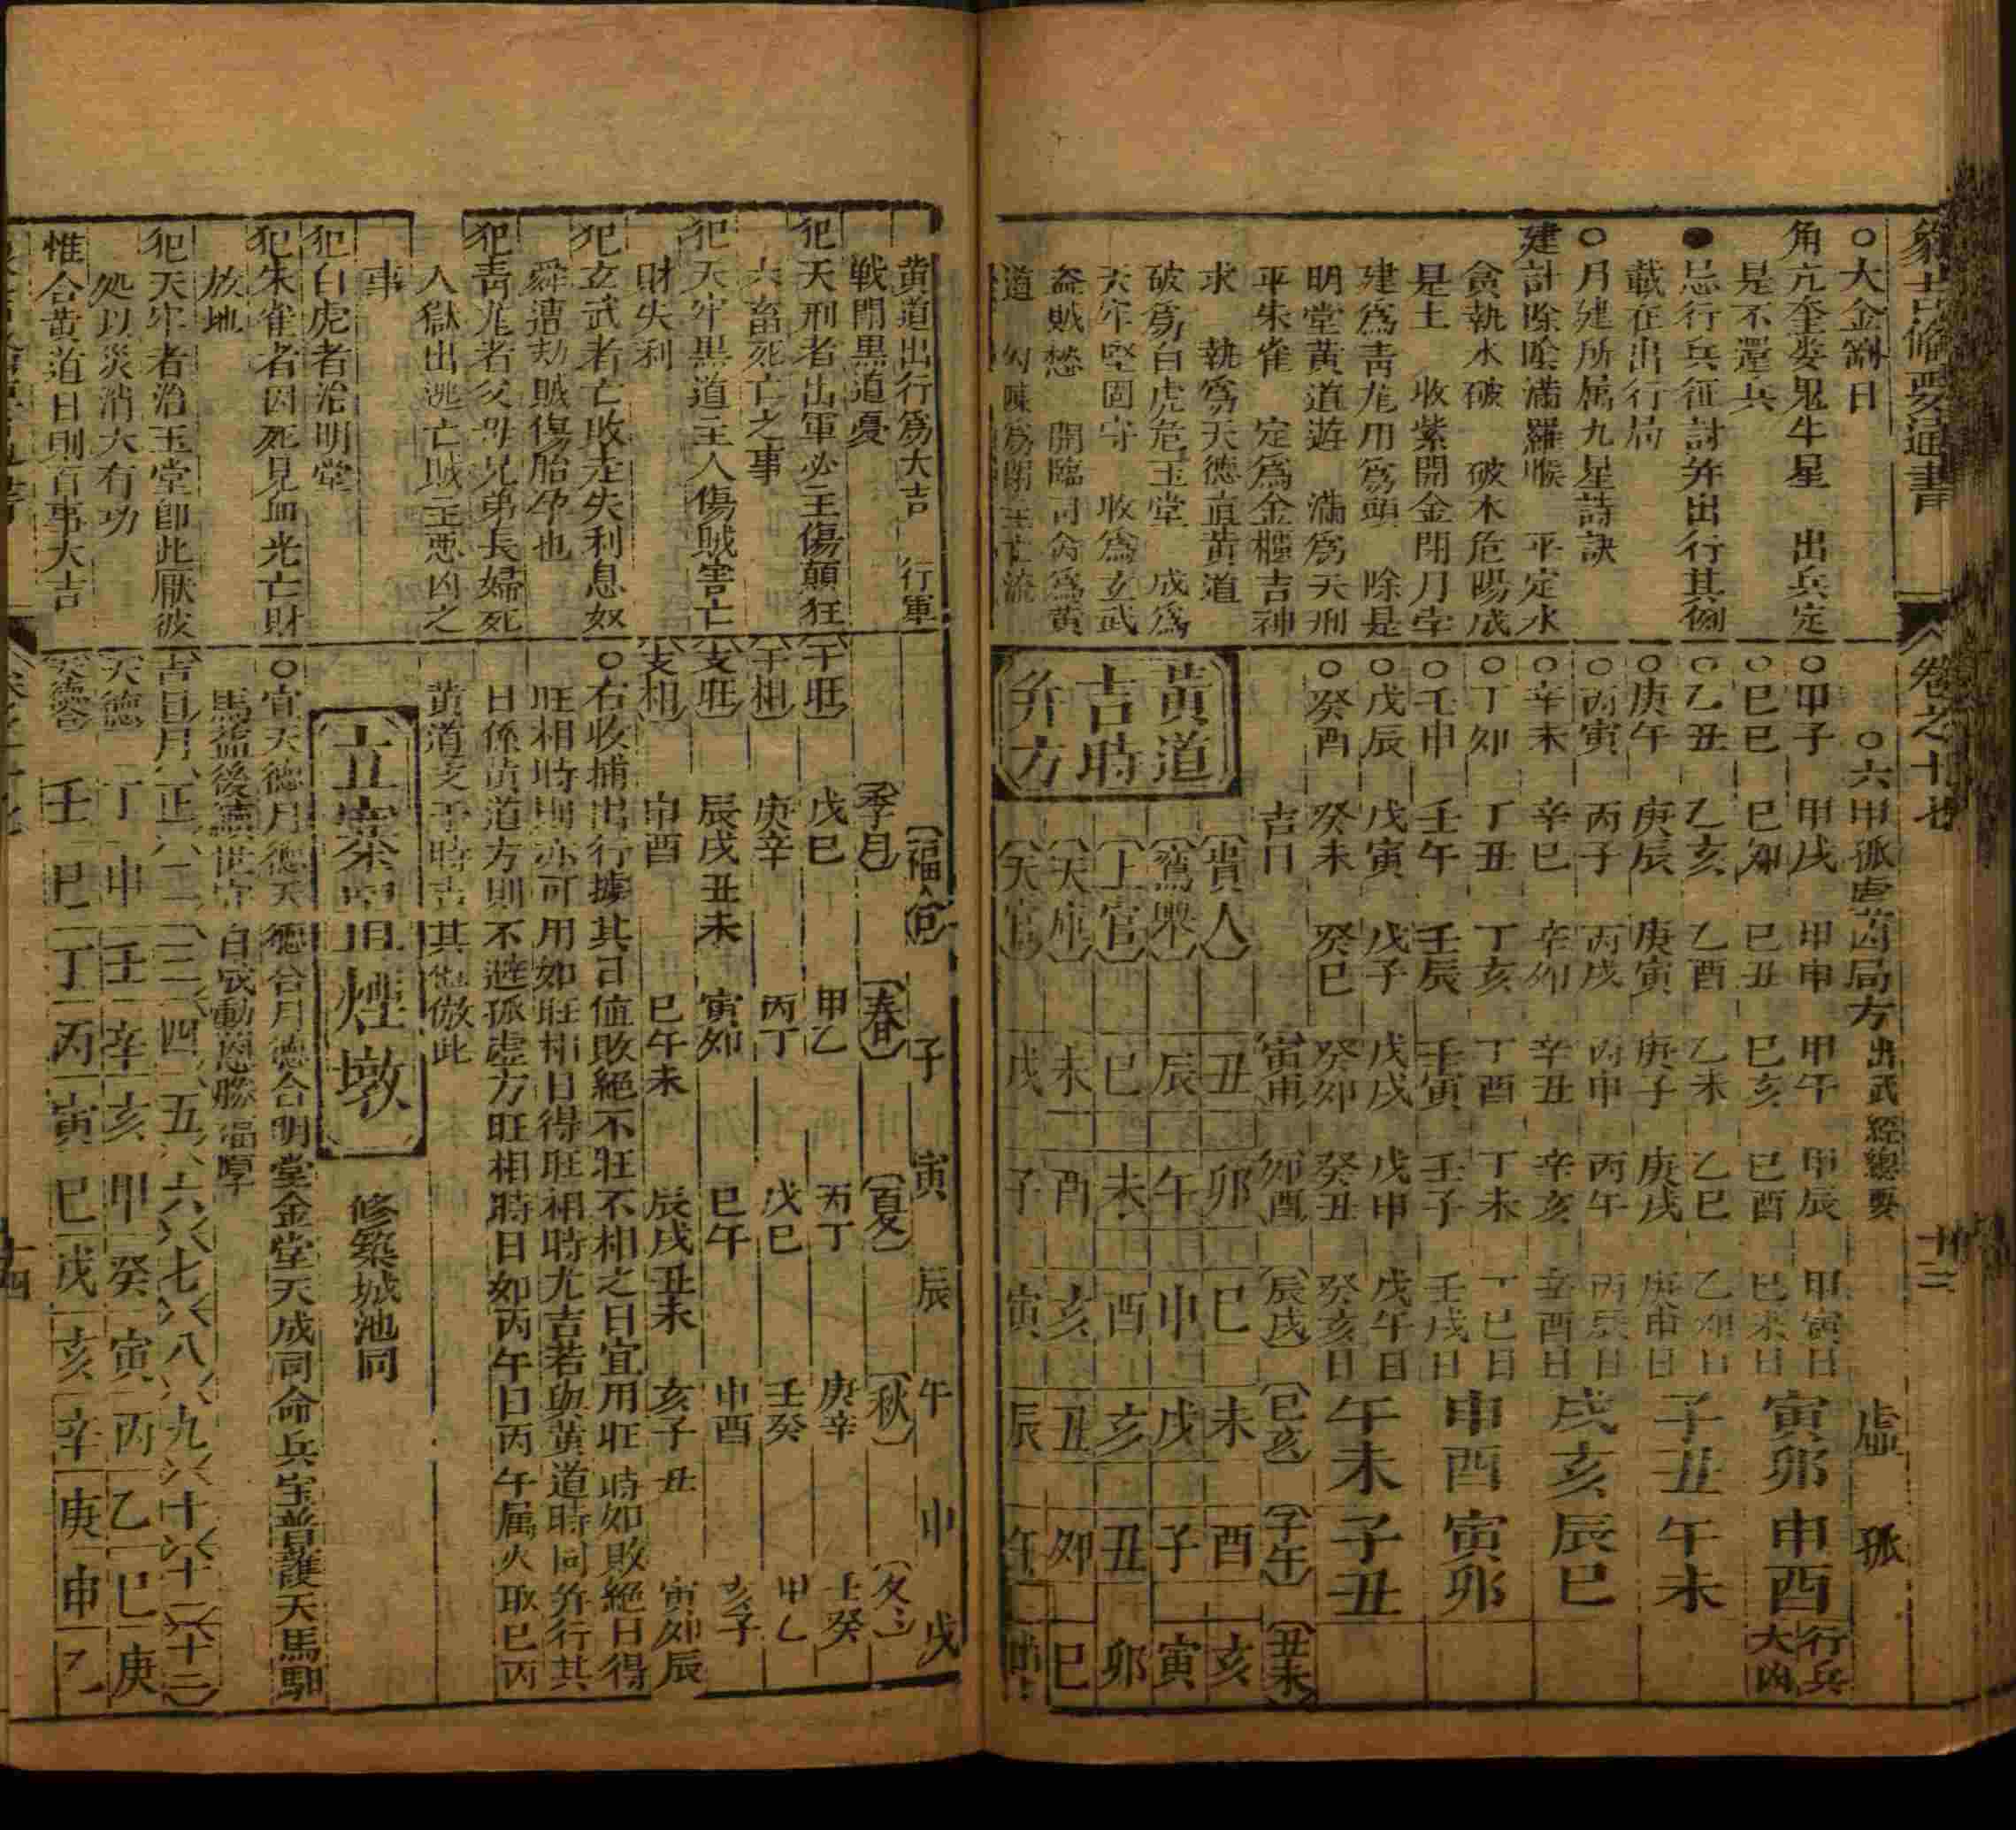 象吉備要通書
卷之十七
十三
○大金剛日
角亢奎婁鬼牛星 出兵定
是不還兵
●忌行兵征討并出行其例
載在出行局
○月建所属九星詩訣
建計除陰滿羅㬋 平定水
貪執水破 破木危陽成
是土 收紫開金閉月孛
建爲青龙用爲頭 除是
明堂黃道遊 滿爲天刑
平朱雀 定爲金櫃吉神
求 執爲天德直黃道
破爲白虎危玉堂 成爲
天牢堅固守 收爲玄武
盗賊愁 開臨司命爲黃
道 勾陳爲閉主亡流
○六甲孤虛凶局方 出武經總要 虛 孤
○甲子 甲戌 甲申 甲午 甲辰 甲寅日
寅卯 申酉 行兵大凶
○巳巳 巳卯 巳丑 巳亥 巳酉 巳未日
○乙丑 乙亥 乙酉 乙未 乙巳 乙卯日
子丑 午未
○庚午 庚辰 庚寅 庚子 庚戌 庚申日
○丙寅 丙子 丙戌 丙申 丙午 丙辰日
戌亥 辰巳
○辛未 辛巳 辛卯 辛丑 辛亥 辛酉日
○丁卯 丁丑 丁亥 丁酉 丁未 丁巳日
申酉 寅卯
○壬申 壬午 壬辰 壬寅 壬子 壬戌日
○戊辰 戊寅 戊子 戊戌 戊申 戊午日
午未 子丑
○癸酉 癸未 癸巳 癸卯 癸丑 癸亥日
黃道吉時并方
吉日 寅申 卯酉 辰戌 巳亥 子午 丑未
貴人 丑 卯 巳 未 酉 亥
鸞輿 辰 午 申 戌 子 寅
上官 巳 未 酉 亥 丑 卯
天庫 未 酉 亥 丑 卯 巳
天官 戌 子 寅 辰 午 申
黃道出行爲大吉 行軍
戰閗黑道憂
犯天刑者出軍必主傷顛狂
六畜死亡之事
犯天牢黑道主人傷賊害亡
財失利
犯玄武者亡敗走失利息奴
舜遭刼賊傷胎孕也
犯靑龙者父母兄弟長婦死
入獄出逃亡賊主悪凶之
事
犯白虎者治明堂
犯朱雀者因死見血光亡財
放地
犯天牢者治玉堂卽此厭彼
処以災消大有功
惟合黃道日則百事大吉
福合 子 寅 辰 午 申 戌
季月 春 夏 秋 冬
干旺 戊巳 甲乙 丙丁 庚辛 壬癸
干相 庚辛 丙丁 戊巳 壬癸 甲乙
支旺 辰戌丑未 寅卯 巳午 申酉 亥子
支相 申酉 巳午未 辰戌丑未 亥子丑 寅卯辰
○右收捕出行據其己值敗絕不旺不相之日宜用旺時如敗絕日得
旺相時則亦可用如旺相日得旺相時尤吉若與黃道時同并行其
日係黃道方則不避孤虛方旺相時日如丙午日丙午属火取巳丙
黃道支干時吉其他倣此
立寨開煙墩 修築城池同
○宜天德月德天德合月德合明堂金堂天成司命兵宝普護天馬馹
馬益後續世守日成動恩勝福厚
吉日月 正 二 三 四 五 六 七 八 九 十 十一 十二
天德 丁 申 壬 辛 亥 甲 癸 寅 丙 乙 巳 庚
天德合 壬 巳 丁 丙 寅 巳 戊 亥 辛 庚 申 乙
十四